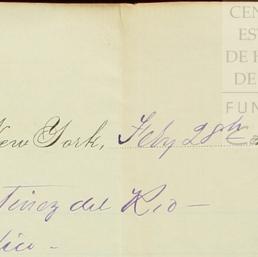 CEN
ES
DE
DE
FUN
New York, Feby 28th
tinez del Rio —
xico —